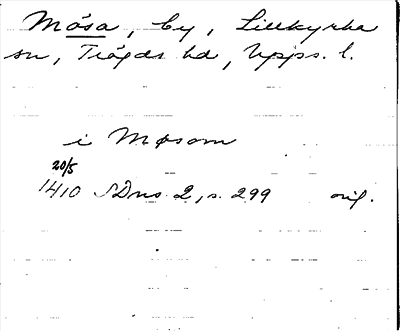 Mosa, by, Lillkyrka
sn, Trögds hd, Upps. l.
i Mosom
20/5
1410 SDns 2, s. 299 orig.